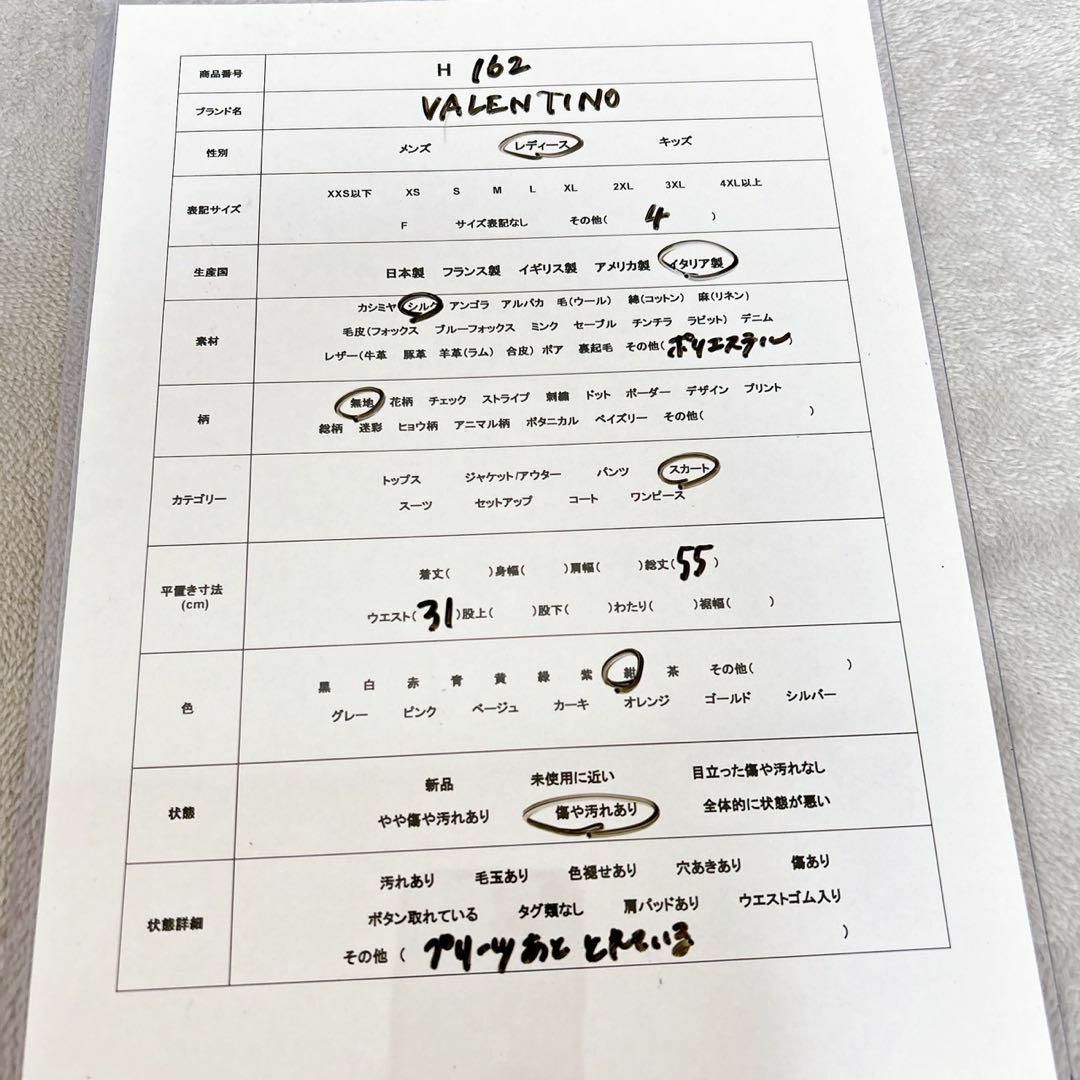 商品番号 H 162
ブランド名 VALENTINO
性別 メンズ レディース キッズ
表記サイズ XXS以下 XS S M L XL 2XL 3XL 4XL以上
F サイズ表記なし その他( 4 )
生産国 日本製 フランス製 イギリス製 アメリカ製 イタリア製
素材 カシミヤ シルク アンゴラ アルパカ 毛(ウール) 綿(コットン) 麻(リネン)
毛皮(フォックス ブルーフォックス ミンク セーブル チンチラ ラビット) デニム
レザー(牛革 豚革 羊革(ラム) 合皮) ボア 裏起毛 その他( ポリエステル
柄 無地 花柄 チェック ストライプ 刺繍 ドット ボーダー デザイン プリント
総柄 迷彩 ヒョウ柄 アニマル柄 ボタニカル ペイズリー その他( )
カテゴリー トップス ジャケット/アウター パンツ スカート
スーツ セットアップ コート ワンピース
平置き寸法 (cm) 着丈( )身幅( )肩幅( )総丈( 55 )
ウエスト( 31 )股上( )股下( )わたり( )裾幅( )
色 黒 白 赤 青 黄 緑 紫 紺 茶 その他( )
グレー ピンク ベージュ カーキ オレンジ ゴールド シルバー
状態 新品 未使用に近い 目立った傷や汚れなし
やや傷や汚れあり 傷や汚れあり 全体的に状態が悪い
状態詳細 汚れあり 毛玉あり 色褪せあり 穴あきあり 傷あり
ボタン取れている タグ類なし 肩パッドあり ウエストゴム入り
その他 ( プリーツあと とれている )